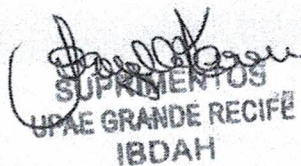 SUPRIMENTOS
UPAE GRANDE RECIFE
IBDAH